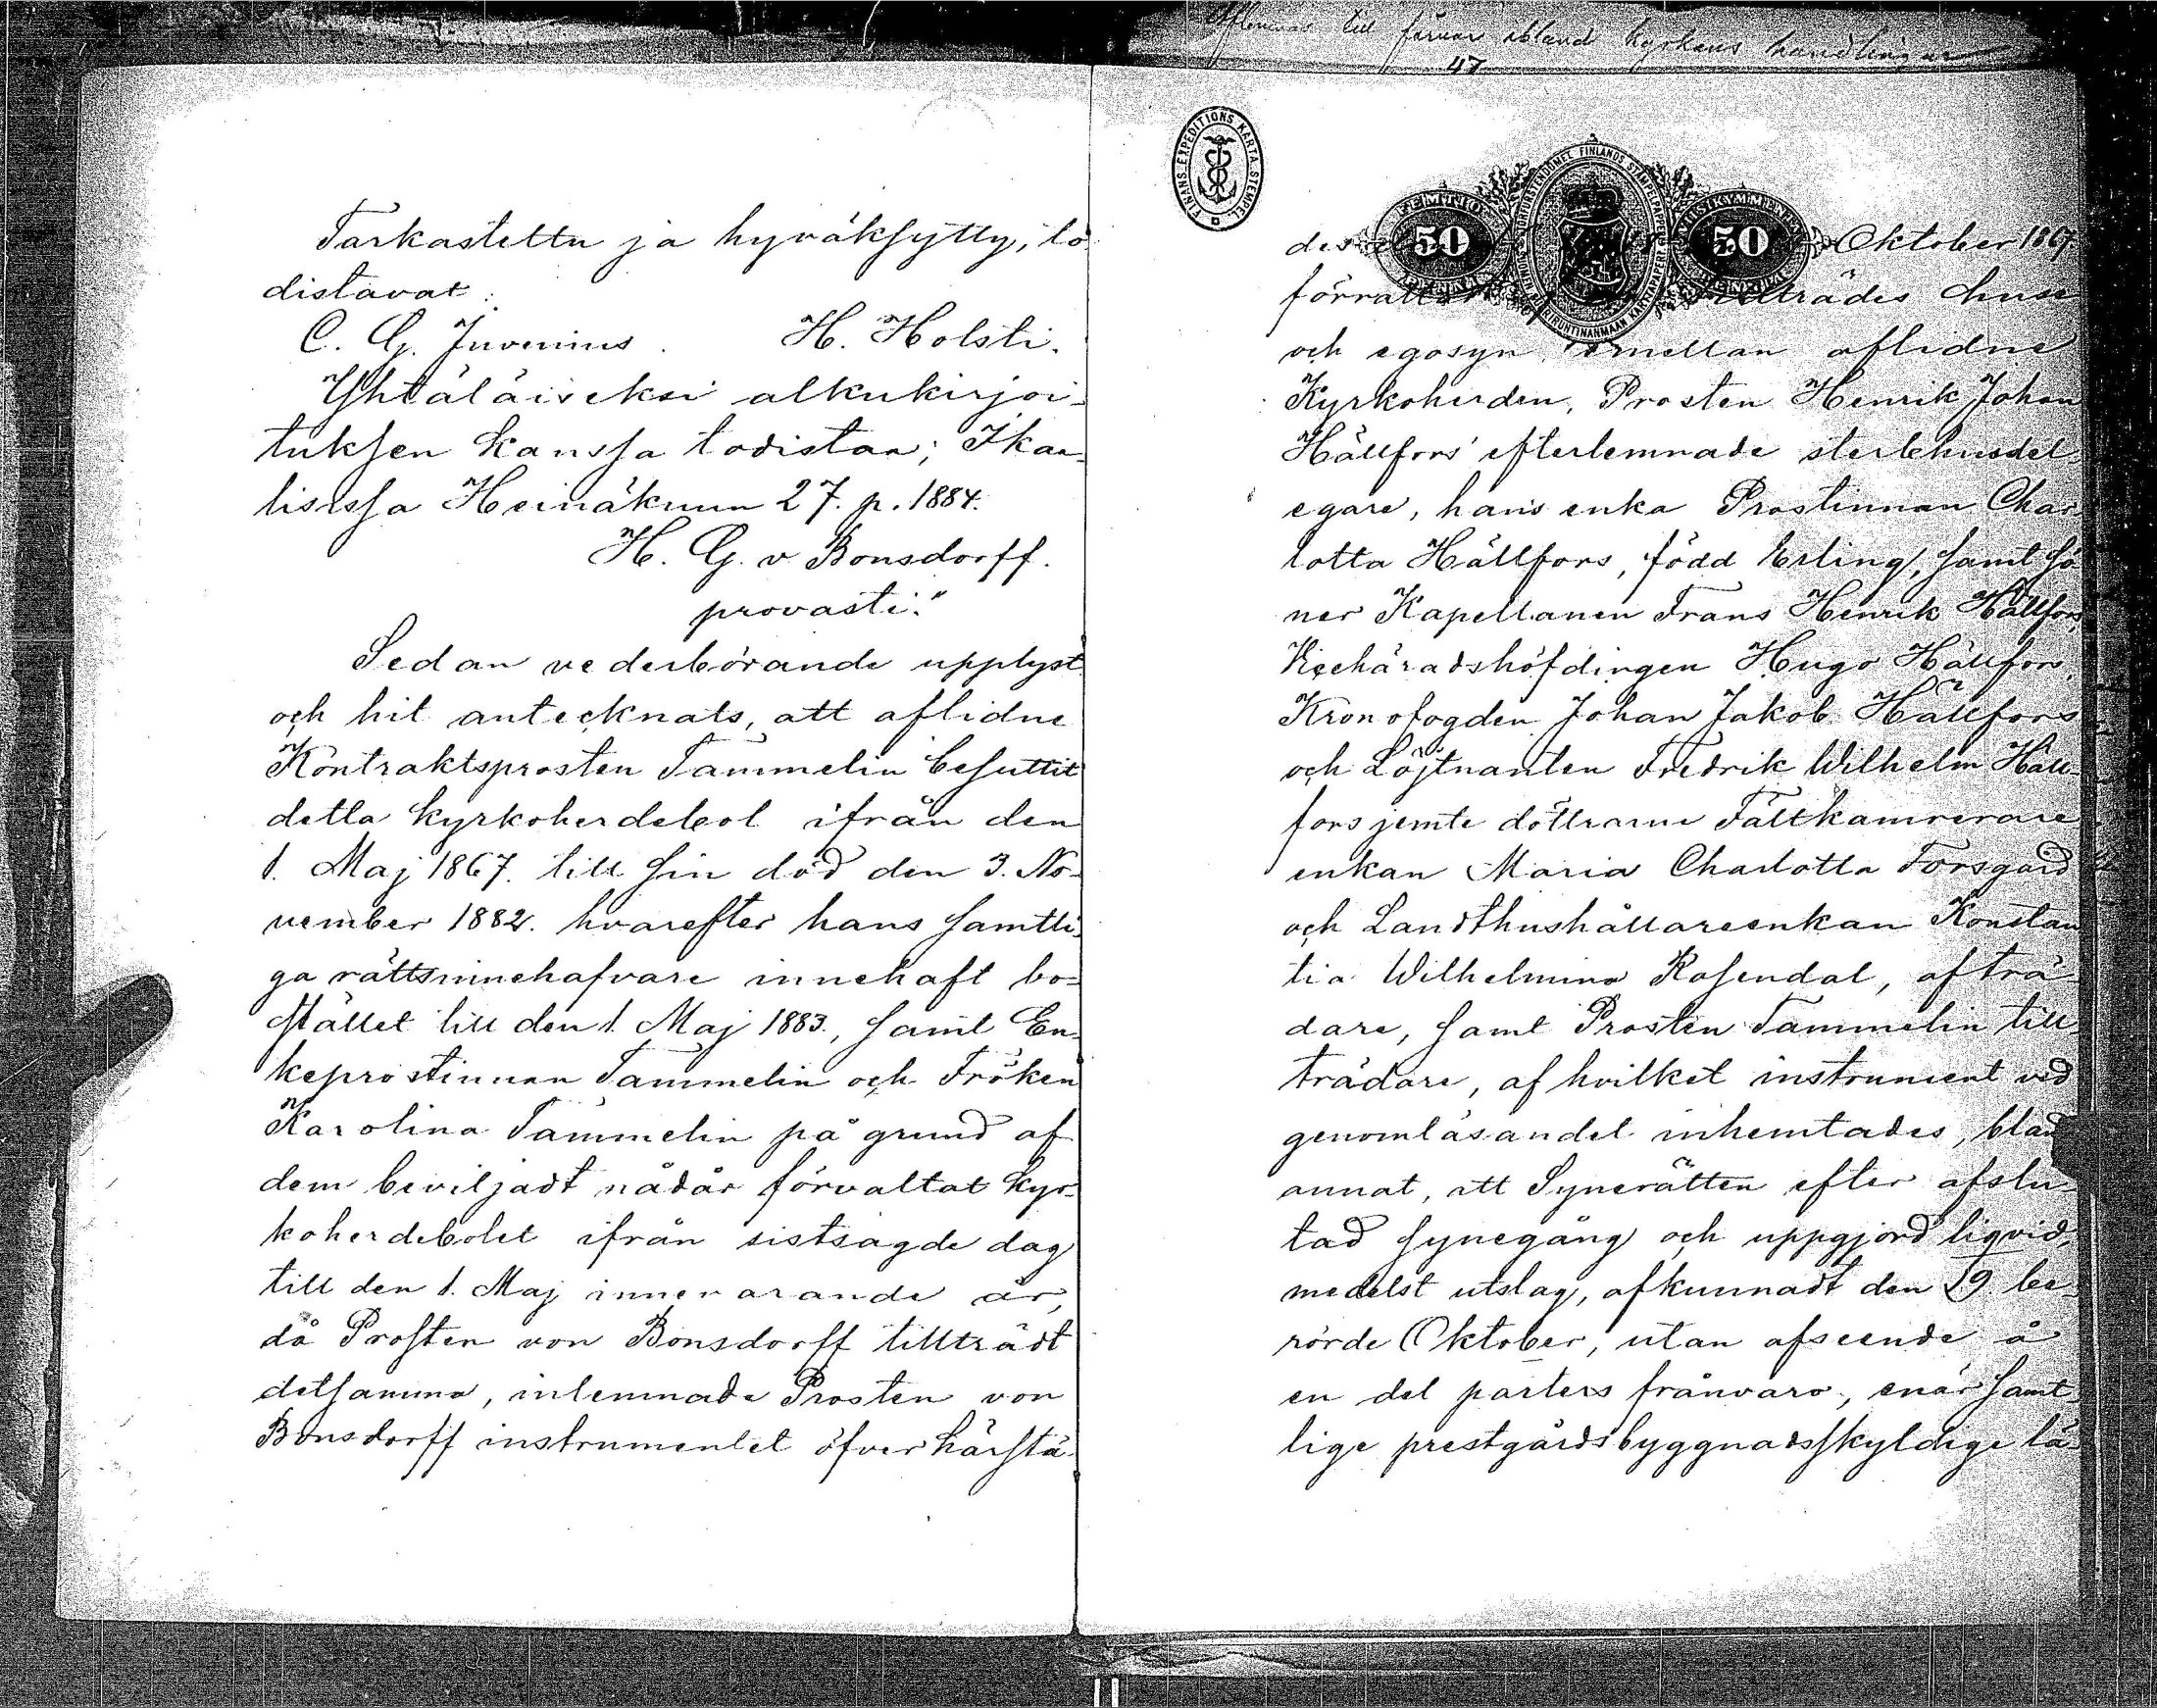 Tarkastettu ja hyväksytty, to-
distavat:
C. G. Juvenius. H. Holsti.
Yhtäläiseksi alkukirjoi-
tuksen kanssa todistaa; Ikaa-
lisissa Heinäkuun 27. p. 1884.
H. G. v Bonsdorff.
provasti."
Sedan vederbörande upplyst
och hit antecknats, att aflidne
Kontraktsprosten Tammelin besuttit
detta kyrkoherdebol ifrån den
1. Maj 1867. till sin död den 3. No-
vember 1882. hvarefter hans samtli-
ga rättsinnehafvare innehaft bo-
stället till den 1. Maj 1883., samt En-
keprostinnan Tammelin och Fröken
Karolina Tammelin på grund af
dem beviljadt nådår förvaltat kyr-
koherdebolet ifrån sistsagde dag
till den 1. Maj innevarande år,
då Prosten von Bonsdorff tillträdt
detsamma, inlemnade Prosten von
Bonsdorff instrumentet öfver härstä-
till förvar ibland kyrkans handlingar
47
FINANS EXPEDITIONS KARTA STEMPEL
FEMTIO
50
50
des Oktober 1867
förrättad tillträdes huse
och egosyn emellan aflidne
Kyrkoherden, Prosten Henrik Johan
Hällfors' efterlemnade sterbhusdel-
egare, hans enka Prostinnan Char-
lotta Hällfors, född Erling, samt sö-
ner Kapellanen Frans Henrik Hällfors,
Vicehäradshöfdingen Hugo Hällfors,
Kronofogden Johan Jakob Hällfors
och Löjtnanten Fredrik Wilhelm Häll-
fors jemte döttrarne Fältkamrerare
enkan Maria Charlotta Forsgård
och Landthushållareenkan Konstan
tia Wilhelmina Rosendal, afträ-
dare, samt Prosten Tammelin till-
trädare, af hvilket instrument vid
genomläsandet inhemtades, bland
annat, att Synerätten efter afslu-
tad synegång och uppgjord liqvid,
medelst utslag, afkunnadt den 19 be-
rörde Oktober, utan afseende å
en del parters frånvaro, enär samt-
lige prestgårdsbyggnadsskyldige lä-